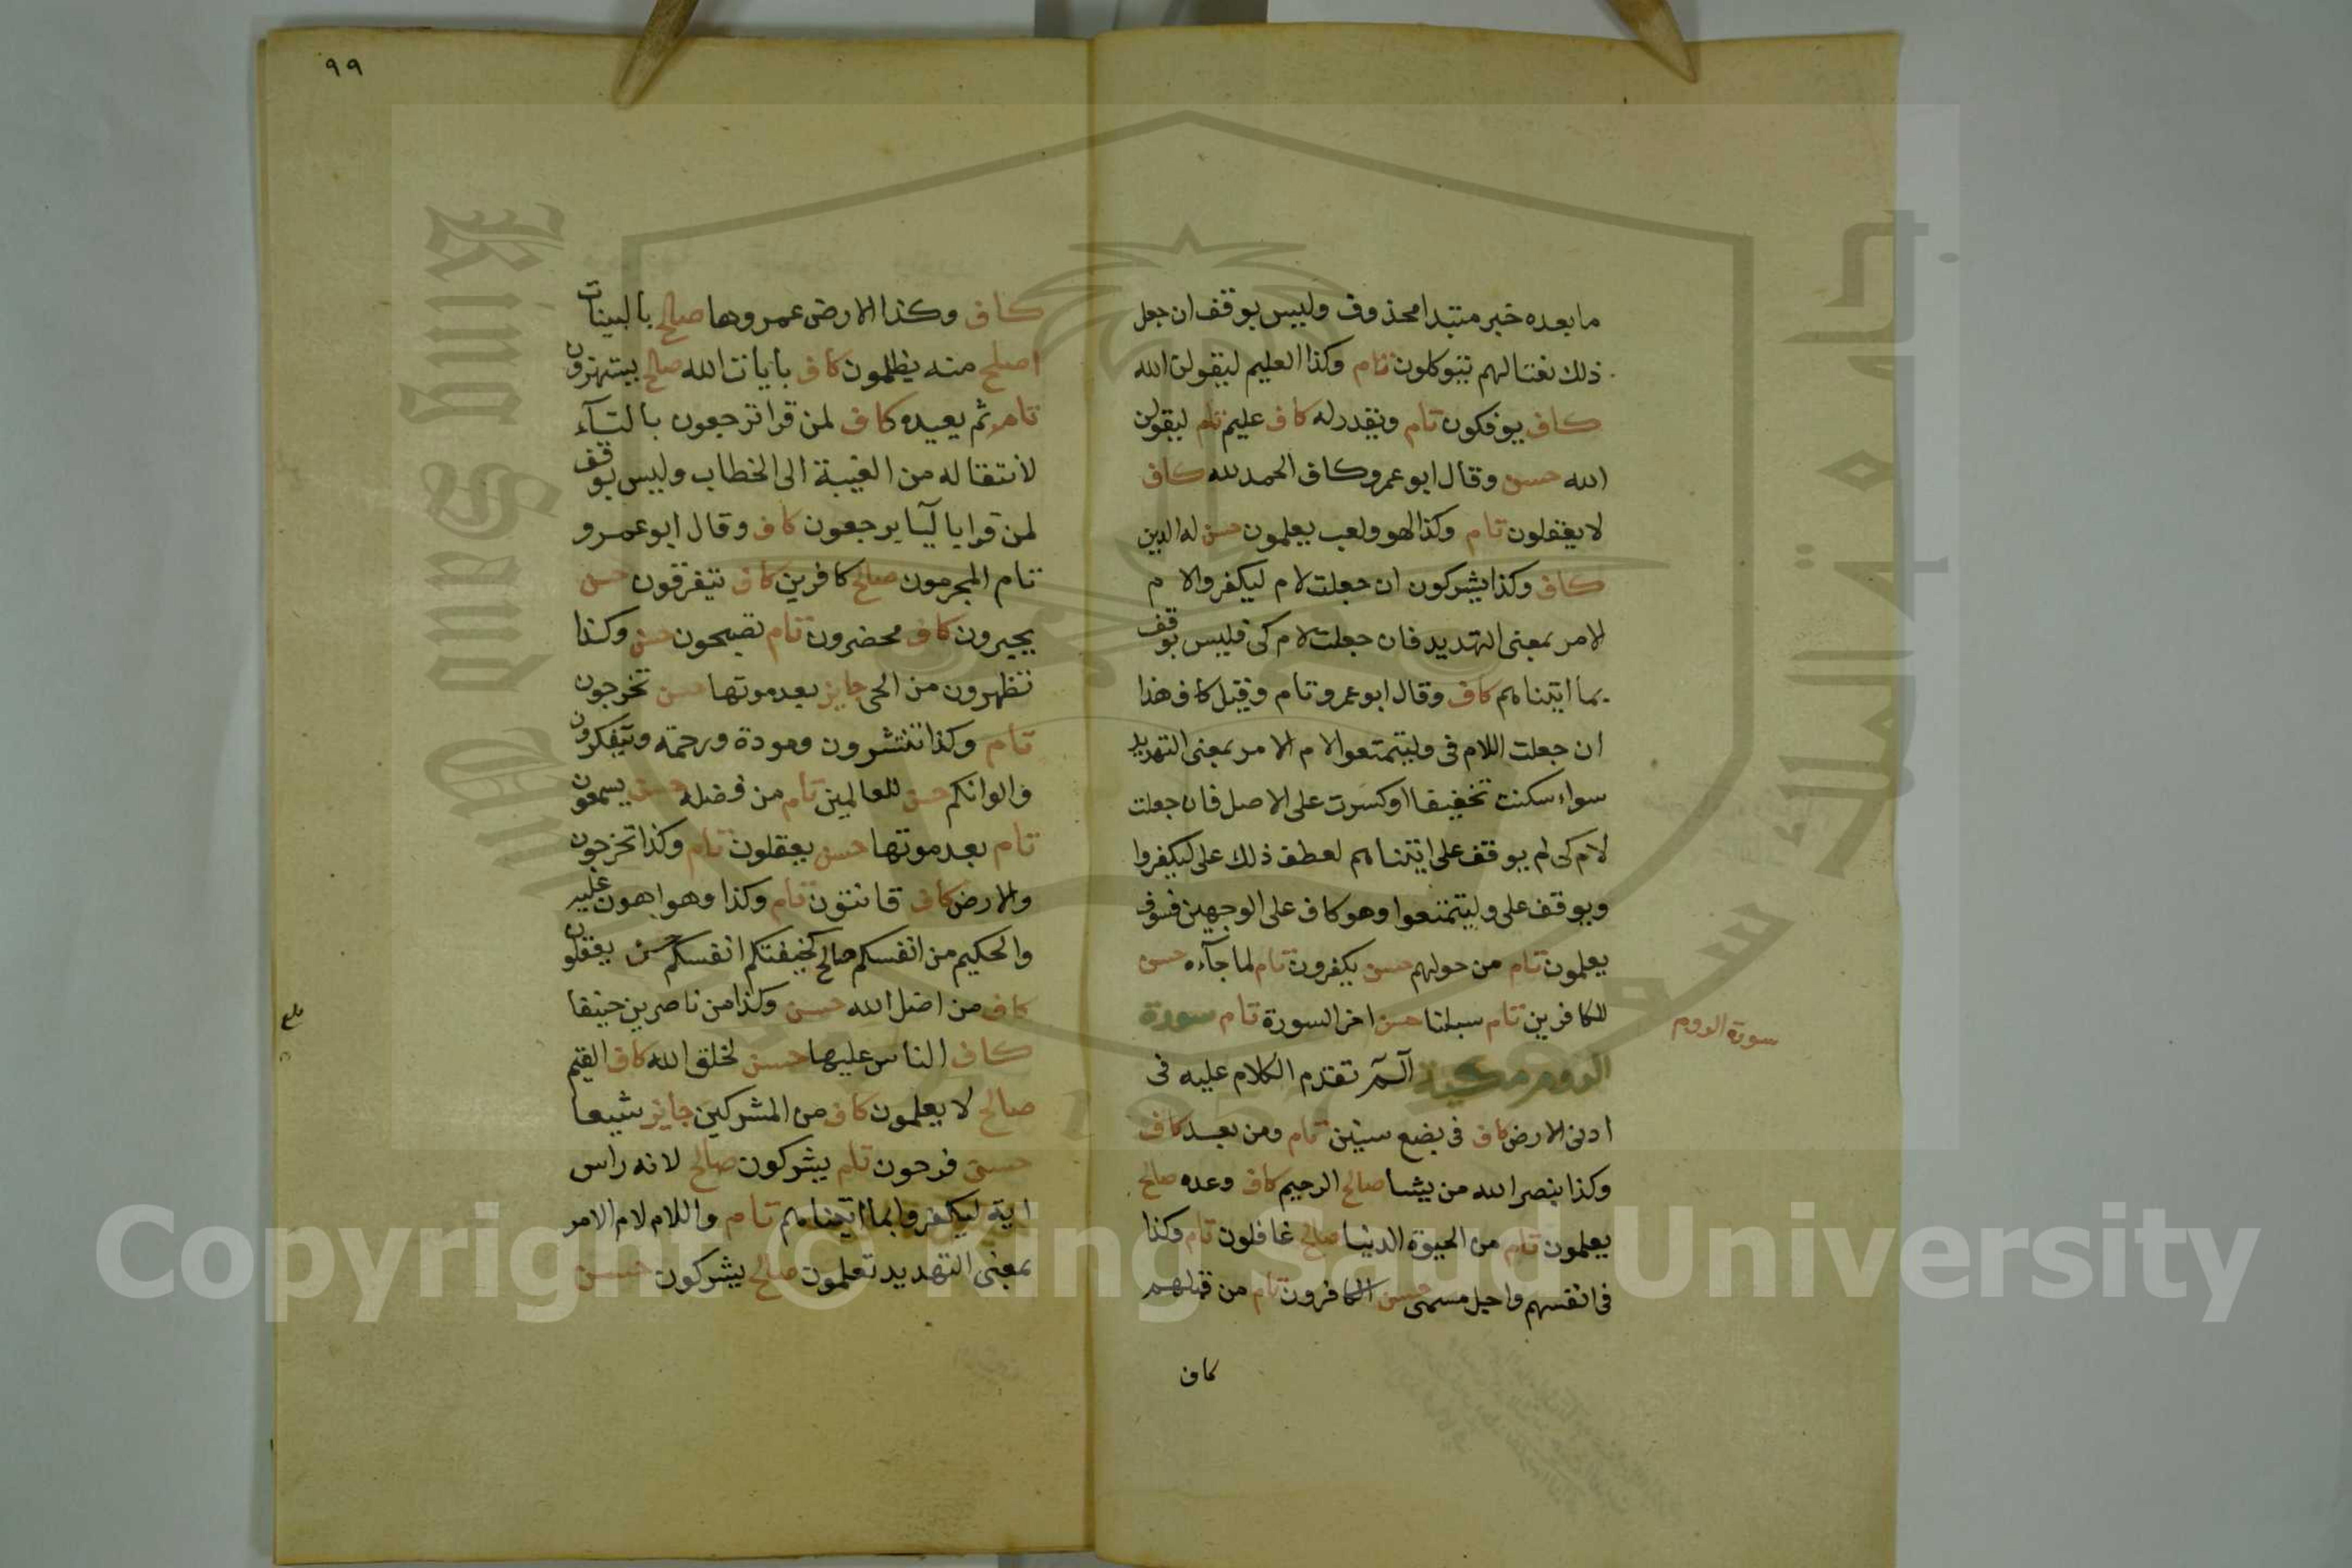 ما بعده خبر مبتدا محذوف وليس بوقف ان جعل
ذلك نعتا لهم يتوكلون تام وكذا العليم ليقولن الله
كاف يوفكون تام ويقدر له كاف عليم تام ليقولن
الله حسن وقال ابو عمرو كاف الحمد لله كاف
لا يعقلون تام وكذا لهو ولعب يعلمون حسن له الدين
كاف وكذا يشركون ان جعلت لام ليكفروا لام
الامر بمعنى التهديد فان جعلت لام كى فليس بوقف
بما اتيناهم كاف وقال ابو عمرو تام وقيل كاف هذا
ان جعلت اللام فى وليتمتعوا لام الامر بمعنى التهديد
سواء سكنت تخفيفا او كسرت على الاصل فان جعلت
لام كى لم يوقف على اتيناهم لعطف ذلك على ليكفروا
ويوقف على وليتمتعوا وهو كاف على الوجهين فسوف
يعلمون تام من حولهم حسن يكفرون تام لما جآءه حسن
للكافرين تام سبلنا حسن اخر السورة تام سورة
سورة الروم
الروم مكية آلم تقدم الكلام عليه فى
ادنى الارض كاف فى بضع سنين تام ومن بعد كاف
وكذا بنصر الله من يشا صالح الرحيم كاف وعده صالح
يعلمون تام من الحيوة الدنيا صالح غافلون تام وكذا
فى انفسهم واجل مسمى حسن الكافرون تام من قبلهم
كاف
٩٩
كاف وكذا الارض عمروها صالح بالبينات
اصلح منه يظلمون كاف بايات الله صالح يستهزون
تام ثم يعيده كاف لمن قرا ترجعون بالتآء
لانتقاله من الغيبة الى الخطاب وليس بوقف
لمن قرا باليآ يرجعون كاف وقال ابو عمرو
تام المجرمون صالح كافرين كاف يتفرقون حسن
يحبرون كاف محضرون تام تصبحون حسن وكذا
تظهرون من الحى جايز بعد موتها حسن تخرجون
تام وكذا تنتشرون ومودة ورحمة ويتفكرون
والوانكم حسن للعالمين تام من فضله حسن يسمعون
تام بعد موتها حسن يعقلون تام وكذا تخرجون
والارض كاف قانتون تام وكذا وهو اهون عليه
والحكيم من انفسكم صالح كخيفتكم انفسكم حسن يعقلون
كاف من اضل الله حسن وكذا من ناصرين حنيفا
كاف الناس عليها حسن لخلق الله كاف القيم
صالح لا يعلمون كاف من المشركين جايز شيعا
حسن فرحون تام يشركون صالح لانه راس
اية ليكفروا بما اتيناهم تام واللام لام الامر
بمعنى التهديد تعلمون صالح يشركون حسن
Copyright © King Saud University